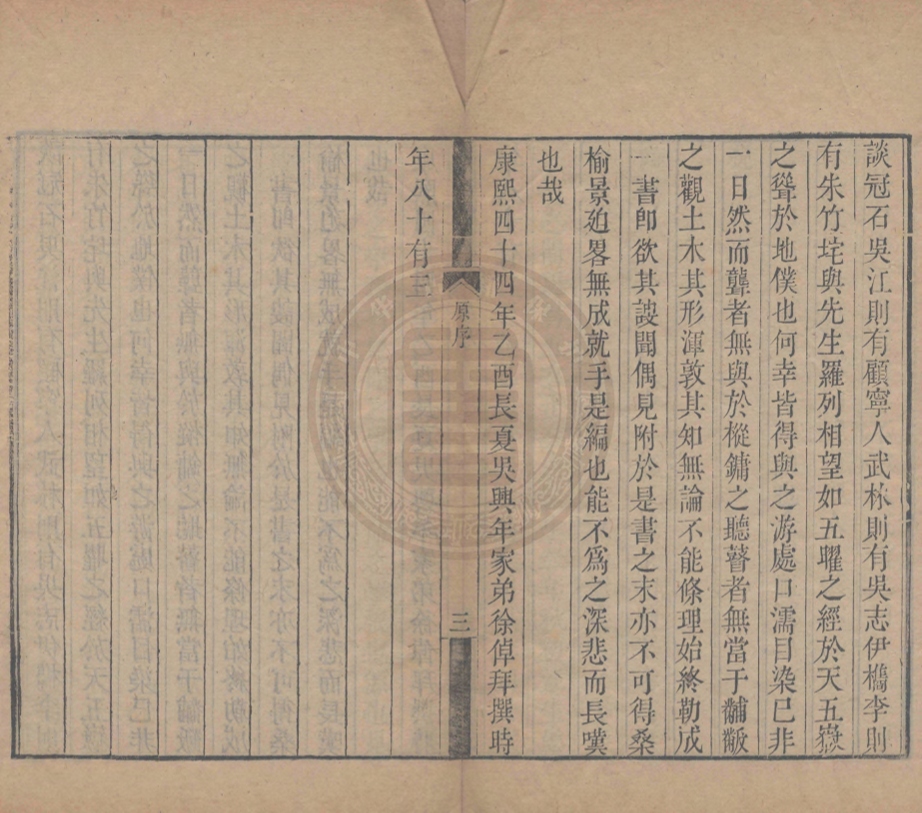 談冠石吳江則有顧寧人武林則有吳志伊檇李則
有朱竹垞與先生羅列相望如五曜之經於天五嶽
之聳於地僕也何幸皆得與之游處口濡目染已非
一日然而聾者無與於樅鏞之聽瞽者無當于黼黻
之觀土木其形渾敦其知無論不能條理始終勒成
一書卽欲其謏聞偶見附於是書之末亦不可得桑
榆景廹畧無成就手是編也能不爲之深悲而長嘆
也哉
康熙四十四年乙酉長夏吳興年家弟徐倬拜撰時
原序
三
年八十有三